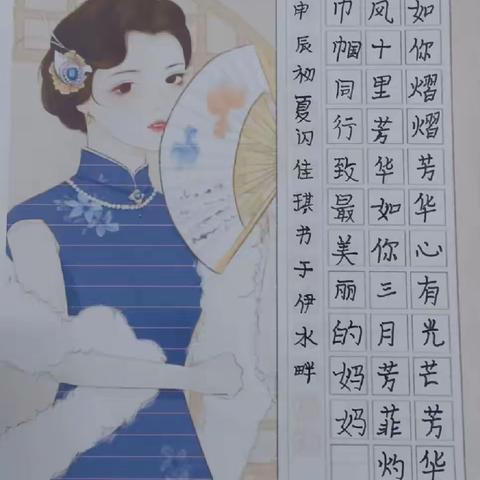 如你熠熠芳华心有光芒芳华
凤十里芳华如你三月芳菲灼
巾帼同行致最美丽的妈妈
申辰初夏闪佳琪书于伊水畔